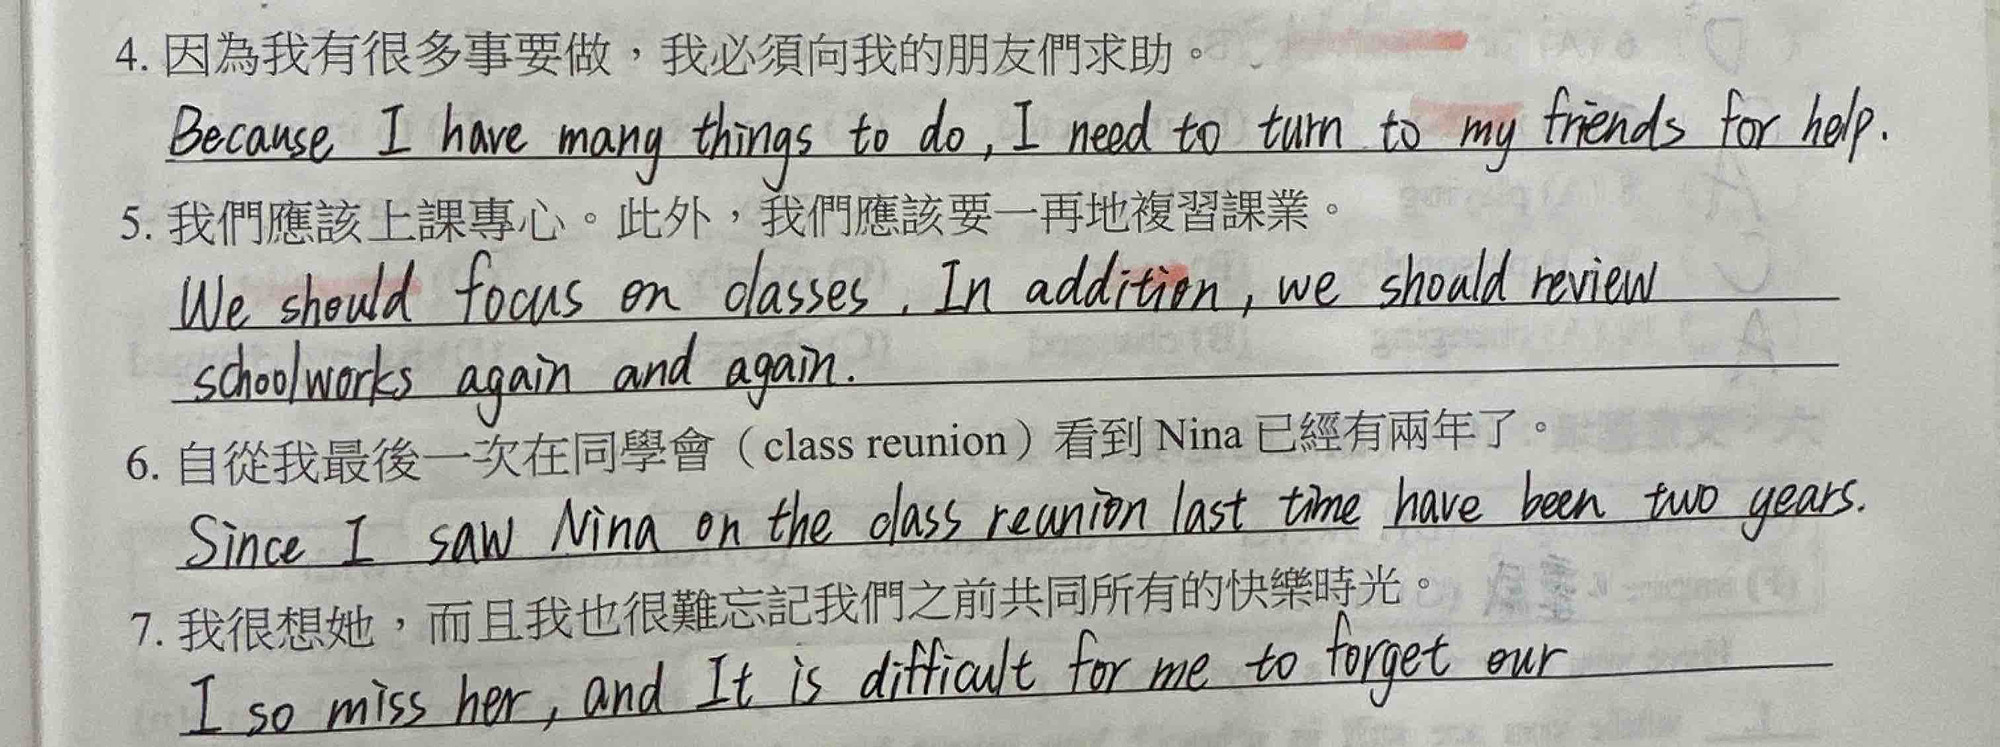 4. 因為我有很多事要做，我必須向我的朋友們求助。
Because I have many things to do, I need to turn to my friends for help.
5. 我們應該上課專心。此外，我們應該要一再地複習課業。
We should focus on classes. In addition, we should review
schoolworks again and again.
6. 自從我最後一次在同學會（class reunion）看到 Nina 已經有兩年了。
Since I saw Nina on the class reunion last time have been two years.
7. 我很想她，而且我也很難忘記我們之前共同所有的快樂時光。
I so miss her, and It is difficult for me to forget our